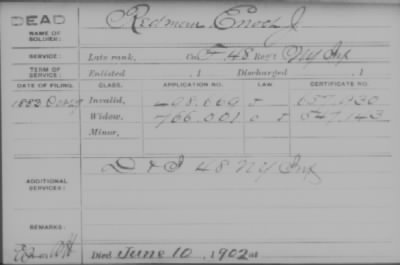 DEAD
NAME OF SOLDIER: Redman Enoch J.
SERVICE: Late rank, Co. F 48 Reg't NY Inf
TERM OF SERVICE: Enlisted , 1 Discharged , 1
DATE OF FILING. CLASS. APPLICATION NO. LAW. CERTIFICATE NO.
1882 Invalid,
Widow, 766.001 547.143
Minor,
ADDITIONAL SERVICES: D & I 48 NY Inf
REMARKS:
Died June 10, 1902 at